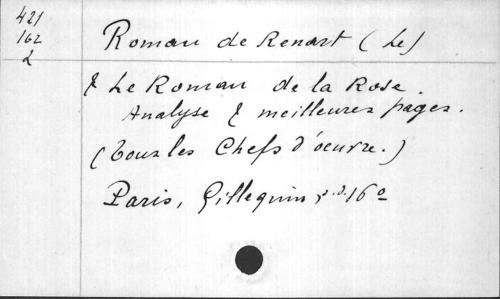 421
162
2
Roman de Renart (Le)
& Le Roman de la Rose.
Analyse & meilleures pages.
(Tous les Chefs d'oeuvre.)
Paris, Gillequin, s.d. 16º